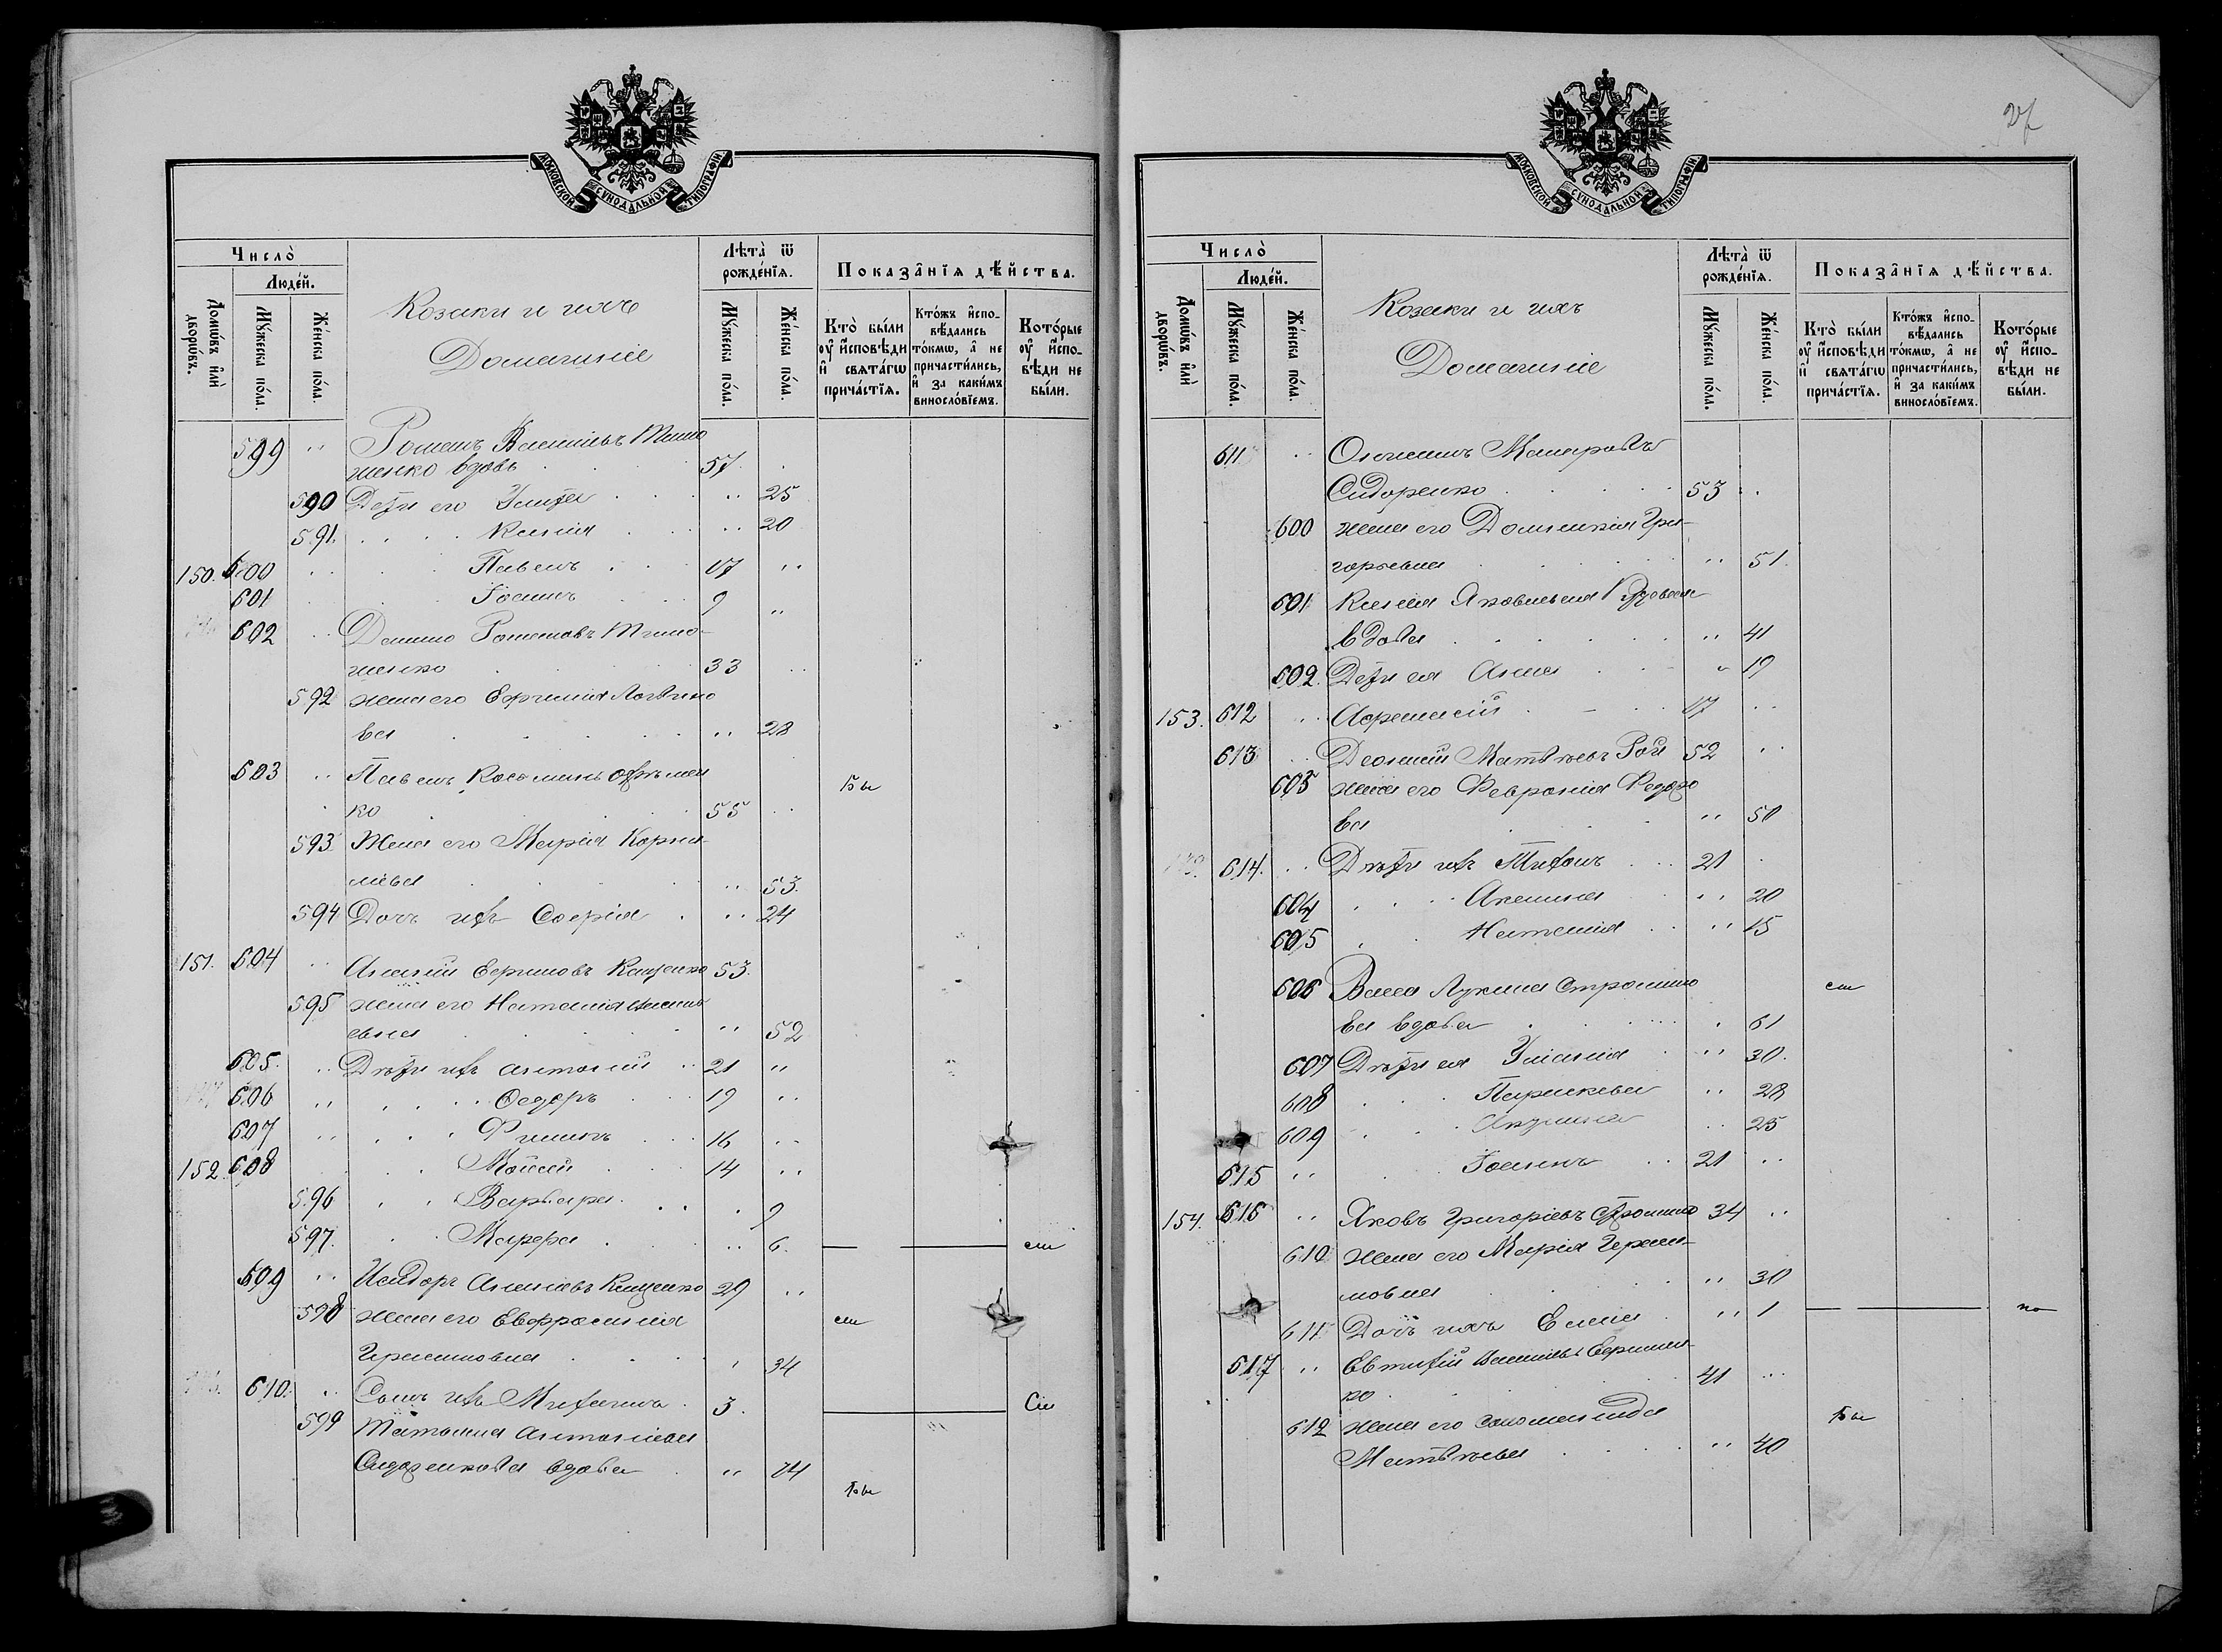 МОСКОВСКОЙ СѴНОДАЛЬНОЙ ТИПОГРАФІИ
Число̀
Людéй.
Домѡ́въ и҆лѝ дворѡ́въ.
Мꙋ́жеска по́ла.
Же́нска по́ла.
Козаки и ихъ
Домашніе
Лѣта̀ ѿ рожде́нїѧ.
Мꙋ́жеска по́ла.
Же́нска по́ла.
Показа̑нїѧ дѣ́йства.
Кто̀ бы́ли ᲂу҆ и҆́сповѣди и҆ свѧта́гѡ прича́стїѧ.
Кто́жъ и҆спо-вѣ́дались то́кмѡ, а҆ не причасти́лись, и҆ за каки́мъ виносло́вїемъ.
Кото́рые ᲂу҆ и҆спо-вѣди не бы́ли.
599 Романъ Васильевъ Тимо
шенко вдовъ 57
590 Дети его Улита 25
591 Ксенія 20
150. 600 Павелъ 17
601 Іоаннъ 9
602 Романовъ Тимо-
шенко 33
592 жена его Евфимія Логвино
ва 28
603 Павелъ Косминъ
ко 55 бы
593 Жена его Марія Корни-
лиева 53
594 Дочь ихъ Софія 24
151. 604 Ананій Ефимовъ Кащенко 53
595 жена его Наталія
евна 52
605 Дѣти ихъ Антоній 21
606 Ѳедоръ 19
607 Филипъ 16
152. 608 Моисей 14
596 Варвара 9
597 Марфа 6 см
609 Исидоръ Ананіевъ Кащенко 29
598 жена его Евфросинія см
Герасимовна 34
610 Сынъ ихъ Митрофанъ 3 См
599 Татьяна Антоніева
Сидоренкова вдова 74
бы
МОСКОВСКОЙ СѴНОДАЛЬНОЙ ТИПОГРАФІИ
Число̀
Людéй.
Домѡ́въ и҆лѝ дворѡ́въ.
Мꙋ́жеска по́ла.
Же́нска по́ла.
Козаки и ихъ
Домашніе
Лѣта̀ ѿ рожде́нїѧ.
Мꙋ́жеска по́ла.
Же́нска по́ла.
Показа̑нїѧ дѣ́йства.
Кто̀ бы́ли ᲂу҆ и҆́сповѣди и҆ свѧта́гѡ прича́стїѧ.
Кто́жъ и҆спо-вѣ́дались то́кмѡ, а҆ не причасти́лись, и҆ за каки́мъ виносло́вїемъ.
Кото́рые ᲂу҆ и҆спо-вѣди не бы́ли.
611 Макаровъ
Сидоренко 53
600 жена его Домникія Гри-
горьевна 51
601 Ксенія Яковлевна
вдова 41
602 Дети ея Анна 19
153. 612 Афанасій 17
613 Леонтій Матвѣевъ Рой 52
603 жена его Феврония Федоро
ва 50
614 Дѣти ихъ Тихонъ 21
604 Акилина 20
605 Наталія 15
606 Васса Лукина Стромило см
ва вдова 61
607 Дѣти ея Уліанія 30
608 Параскева 28
609 Акулина 25
615 Іоаннъ 21
154. 616 Яковъ Григоріевъ Стромило 34
610 жена его Марія Гераси-
мовна 30
611 Дочь ихъ Елена 1
617 Евтихій Васильевъ Ефимен-
ко 41
612 жена его Соломонида бы
Матвѣева 40